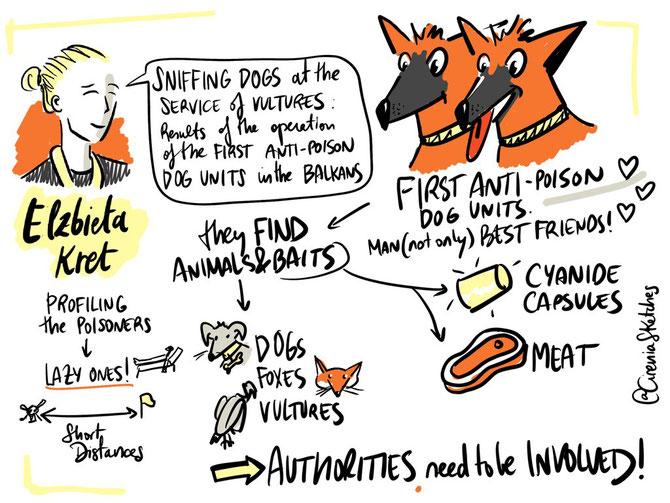 SNIFFING DOGS at the
SERVICE of VULTURES:
Results of the operation
of the FIRST ANTI-POISON
DOG UNITS in the BALKANS
Elzbieta
Kret
FIRST ANTI-POISON
DOG UNITS.
MAN (not only) BEST FRIENDS!
they FIND
ANIMALS & BAITS
CYANIDE
CAPSULES
MEAT
DOGS
FOXES
VULTURES
PROFILING
the POISONERS
LAZY ONES!
Short
Distances
AUTHORITIES need to be INVOLVED!
@CireniaSketches